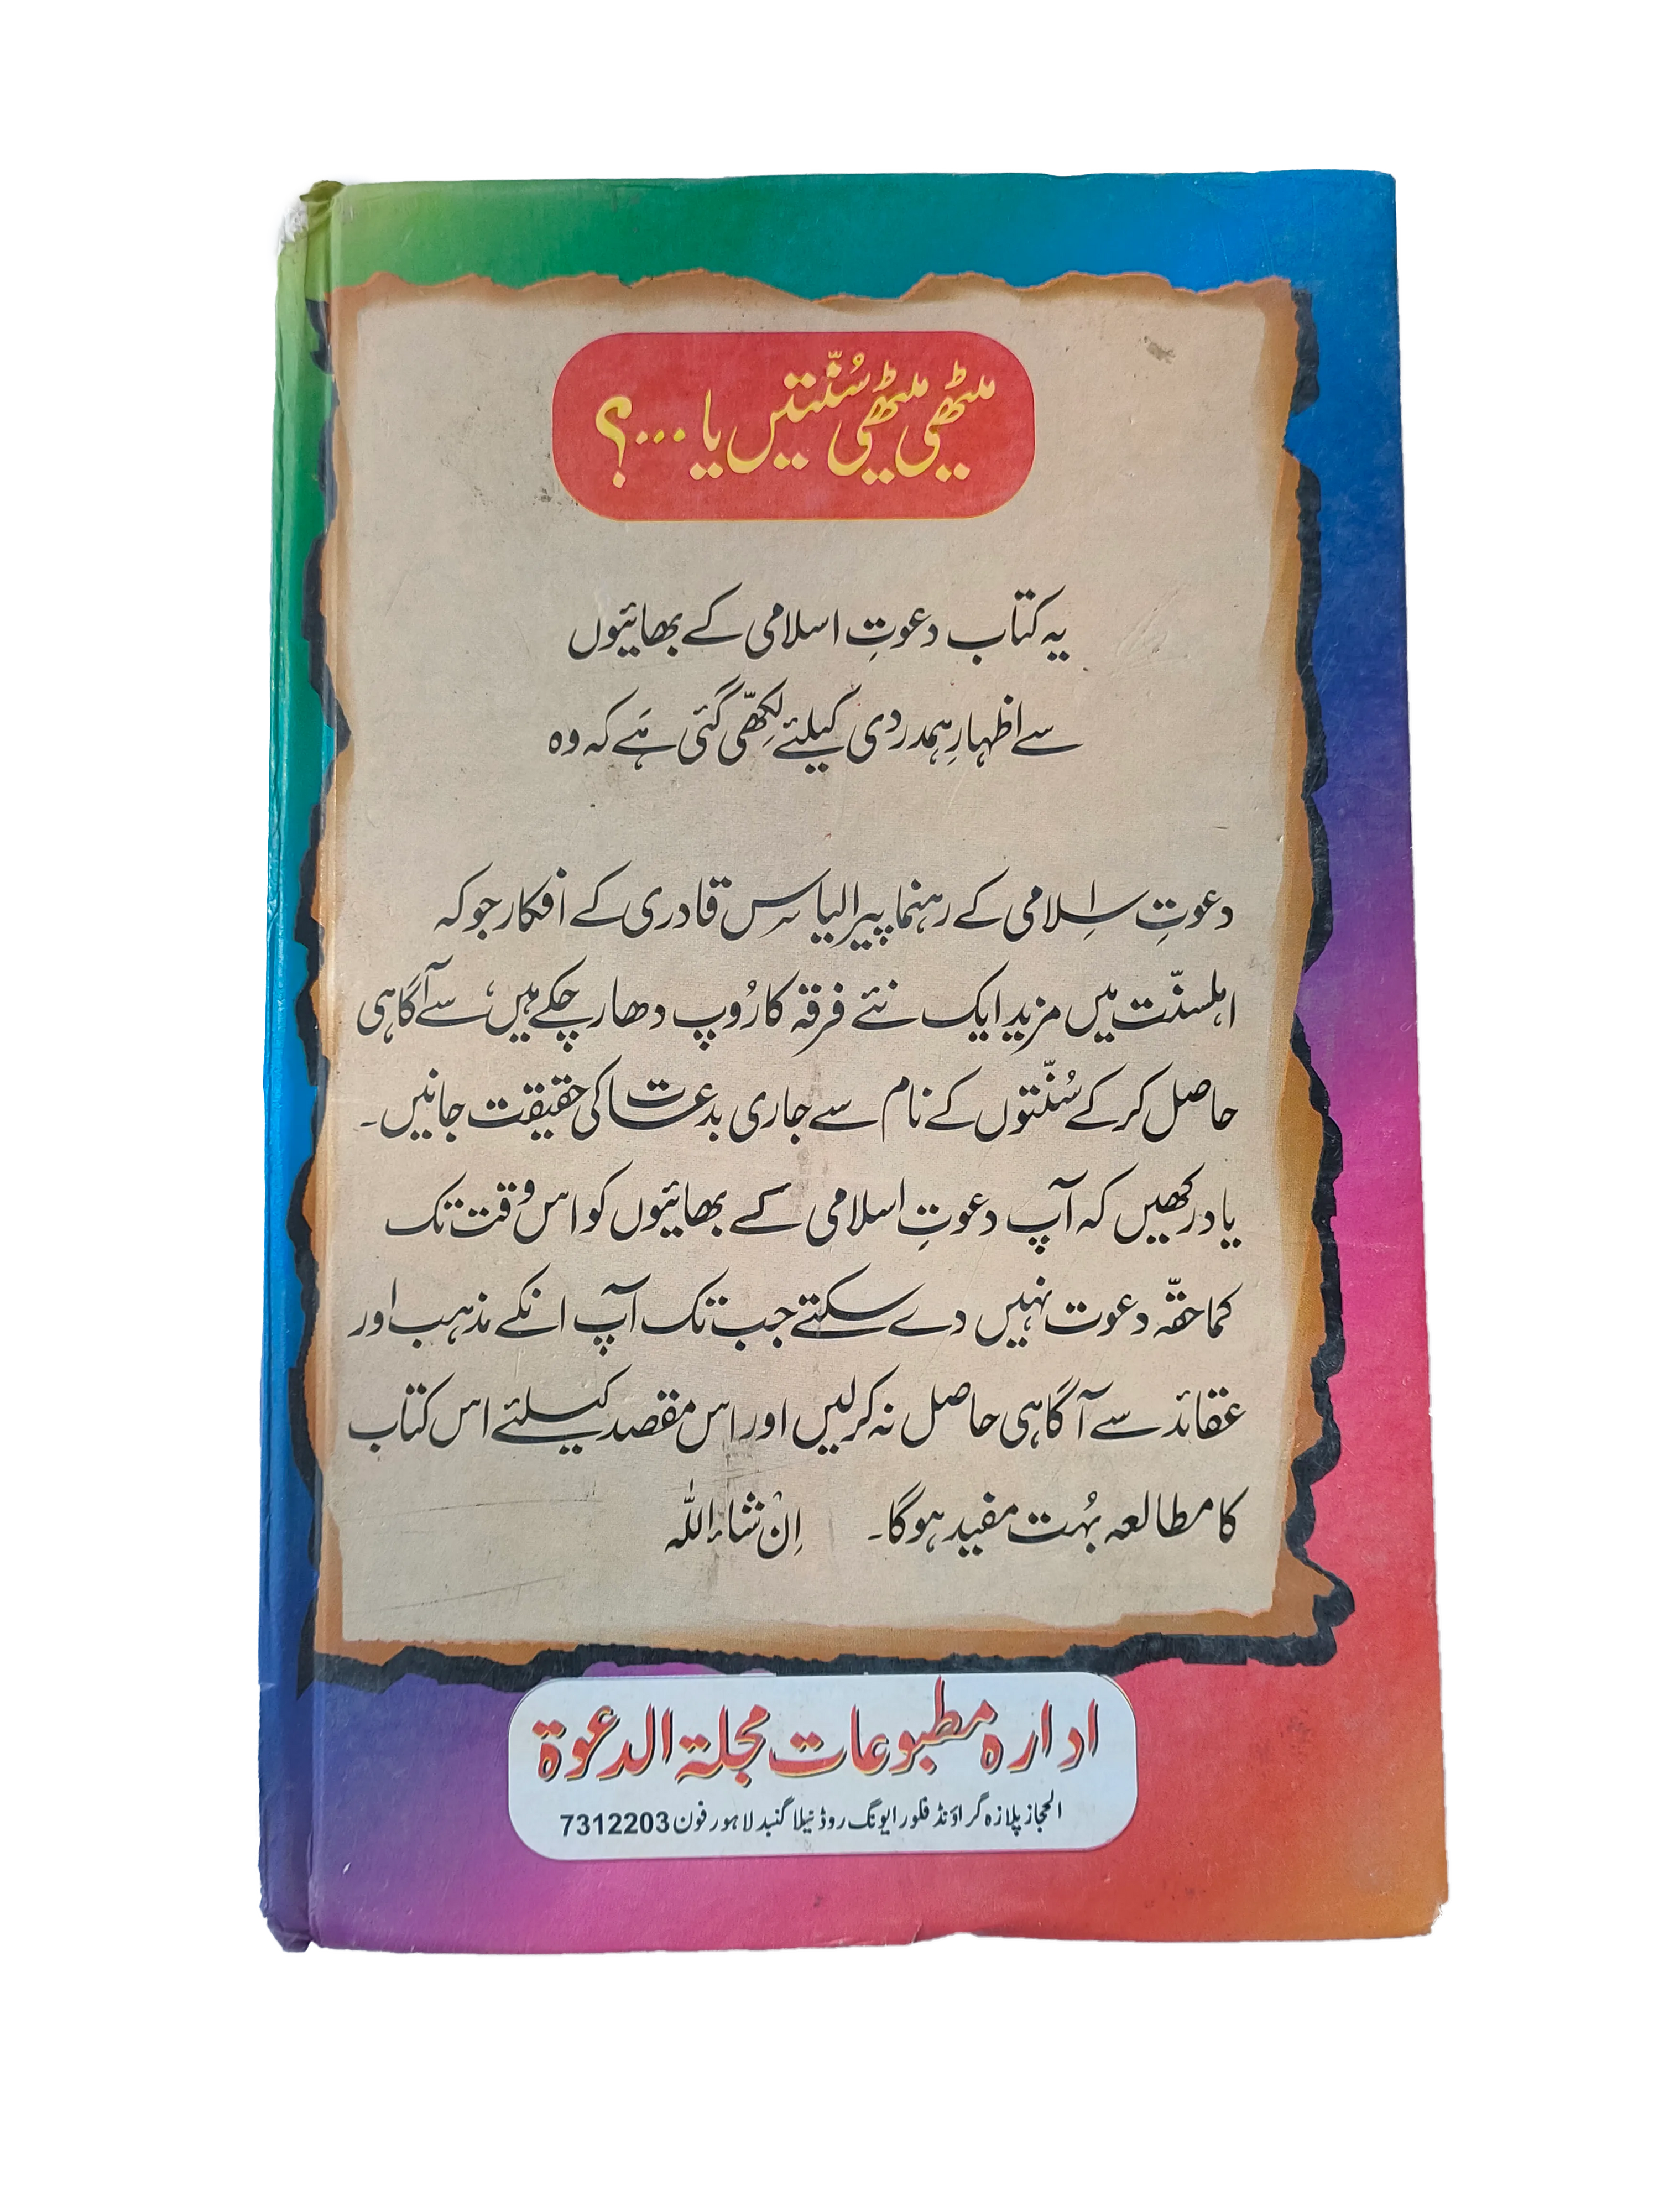 میٹھی میٹھی سُنّتیں یا ...؟
یہ کتاب دعوتِ اسلامی کے بھائیوں
سے اظہارِ ہمدردی کیلئے لِکھّی گئی ہَے کہ وہ
دعوتِ اِسلامی کے رہنما پیر الیاس قادری کے افکار جو کہ
اہلسنّت میں مزید ایک نئے فرقہ کا رُوپ دھار چکے ہیں، سے آگاہی
حاصل کر کے سُنّتوں کے نام سے جاری بدعات کی حقیقت جانیں۔
یاد رکھیں کہ آپ دعوتِ اسلامی کے بھائیوں کو اس وقت تک
کماحقہّ دعوت نہیں دے سکتے جب تک آپ انکے مذہب اور
عقائد سے آگاہی حاصل نہ کرلیں اور اس مقصد کیلئے اس کتاب
کا مطالعہ بہُت مفید ہوگا۔ اِنْ شاء اللہ
ادارہ مطبوعات مجلة الدعوة
الحجاز پلازہ گراؤنڈ فلور ایونگ روڈ نیلا گنبد لاہور فون 7312203